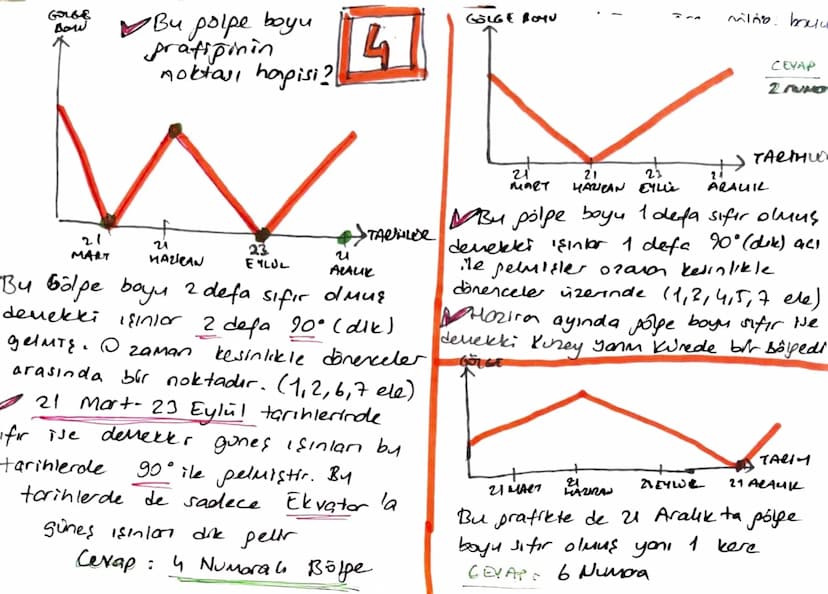 GÖLGE
BOYU
Bu gölge boyu
grafiğinin
noktası hangisi?
4
21
MART
21
HAZİRAN
23
EYLÜL
21
ARALIK
TARİHLER
Bu Gölge boyu 2 defa sıfır olmuş
demekki ışınlar 2 defa 90° (dik)
gelmiş. O zaman kesinlikle dönenceler
arasında bir noktadır. (1,2,6,7 ele)
21 Mart - 23 Eylül tarihlerinde
ıfır ise demekki güneş ışınları bu
tarihlerde 90° ile gelmiştir. Bu
tarihlerde de sadece Ekvator 'a
güneş ışınları dik gelir
Cevap : 4 Numaralı Bölge
GÖLGE BOYU
CEVAP
2 NUMO
21
MART
21
HAZİRAN
23
EYLÜL
21
ARALIK
Bu gölge boyu 1 defa sıfır olmuş
demekki ışınlar 1 defa 90° (dik) açı
ile gelmişler o zaman kesinlikle
dönenceler üzerinde (1,2,4,5,7 ele)
Haziran ayında gölge boyu sıfır ise
demekki Kuzey yarım Kürede bir bölgedi
GÖLGE
21 MART
21
HAZİRAN
21 EYLÜL
21 ARALIK
TARİH
Bu grafikte de 21 Aralık ta gölge
boyu sıfır olmuş yani 1 kere
CEVAP: 6 Numara